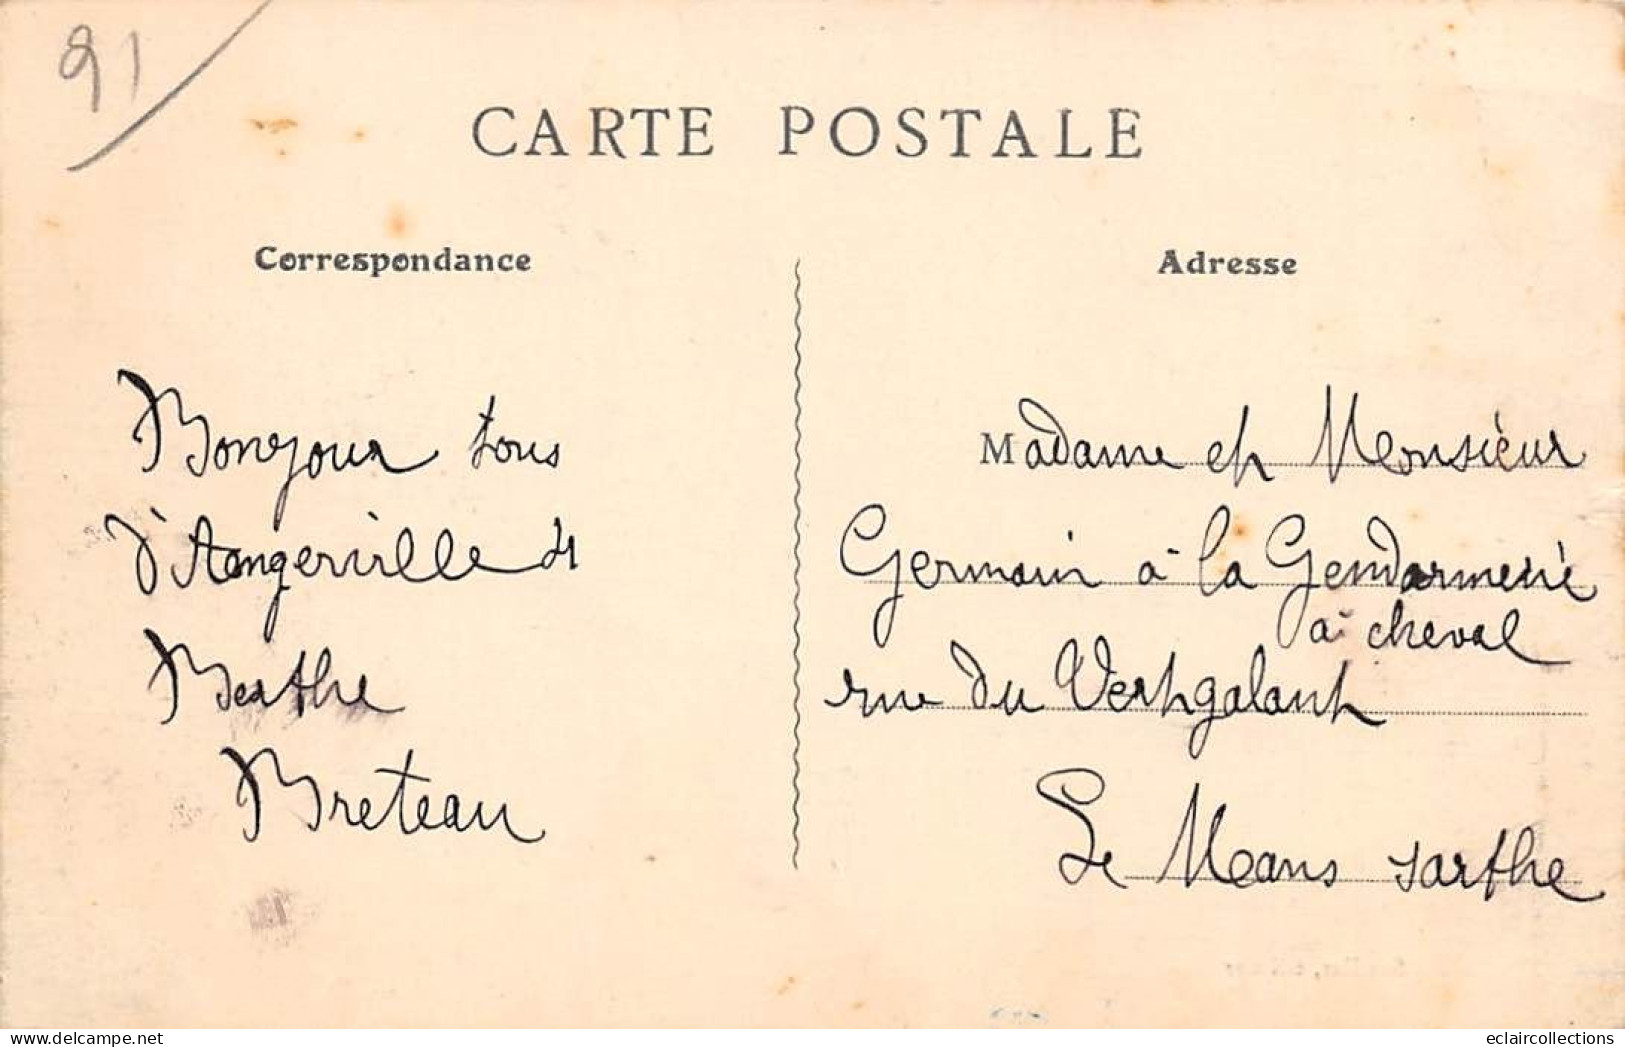 91
CARTE POSTALE
Correspondance
Bonjour tous
d'Angerville
Berthe
Breteau
Adresse
Madame et Monsieur
Germain à la Gendarmerie
à cheval
rue du Vertgalant
Le Mans Sarthe
eclaircollections